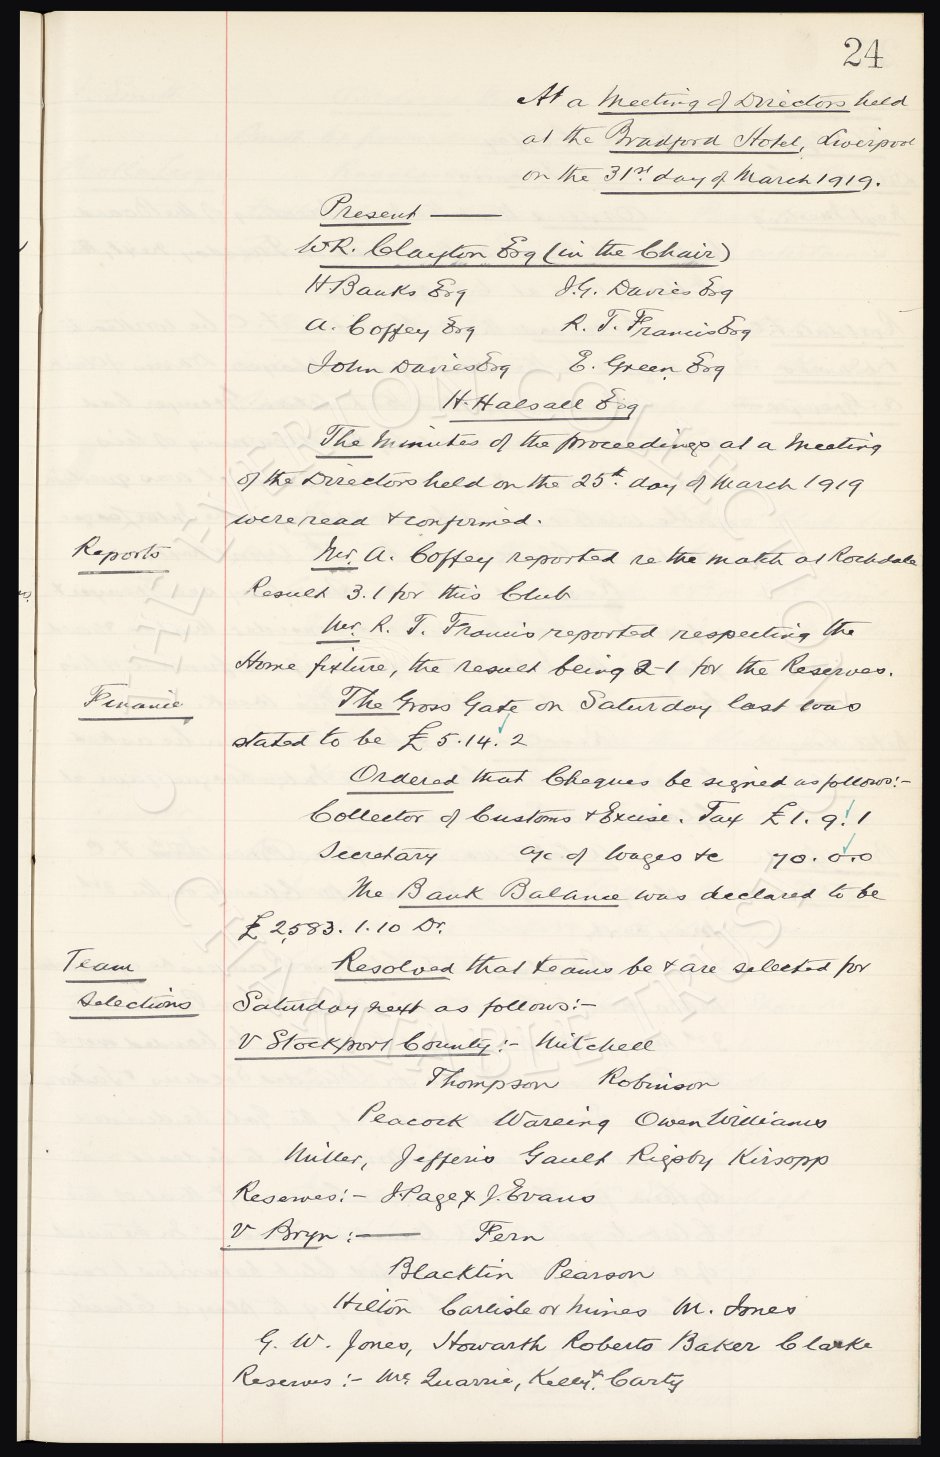 24
At a Meeting of Directors held
at the Bradford Hotel, Liverpool
on the 31st. day of March 1919.
Present —
W.R. Clayton Esq (in the Chair)
H Banks Esq J.G. Davies Esq
A. Coffey Esq R. T. Francis Esq
John Davies Esq E. Green Esq
H. Halsall Esq
The Minutes of the proceedings at a Meeting
of the Directors held on the 25th. day of March 1919
were read & confirmed.
Reports
Mr. A. Coffey reported re the match at Rochdale
Result 3.1 for this Club
Mr. R. T. Francis reported respecting the
Home fixture, the result being 2-1 for the Reserves.
Finance
The Gross Gate on Saturday last was
stated to be £ 5.14.2
Ordered that Cheques be signed as follows:-
Collector of Customs & Excise. Tax £1.9.1
Secretary a/c of Wages &c 70.0.0
The Bank Balance was declared to be
£ 2583.1.10 Dr.
Team
Selections
Resolved that teams be & are selected for
Saturday next as follows:-
V Stockport County:- Mitchell
Thompson Robinson
Peacock Wareing Owen Williams
Miller, Jefferis Gault Rigsby Kirsopp
Reserves:- J. Page & J. Evans
V Bryn:— Fern
Blacktin Pearson
Hilton Carlisle or Mines M. Jones
G. W. Jones, Howarth Roberts Baker Clarke
Reserves:- Mc Quarrie, Kelly & Carty